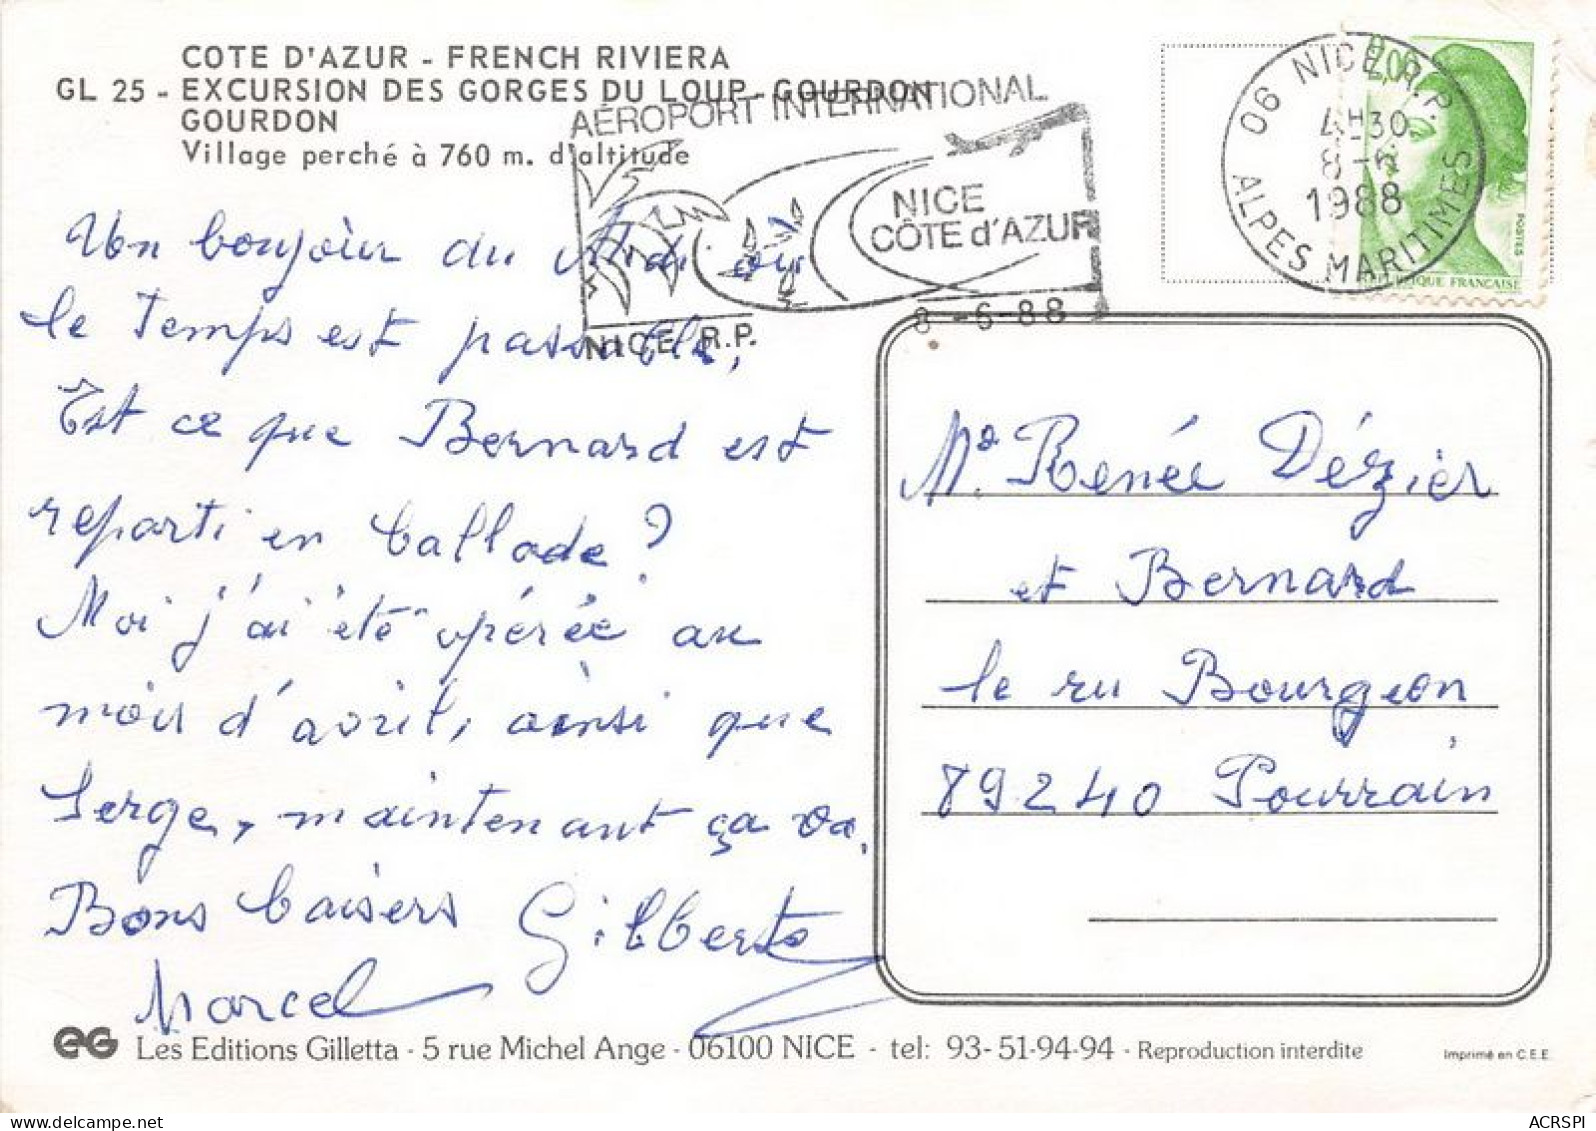 COTE D'AZUR - FRENCH RIVIERA
GL 25 - EXCURSION DES GORGES DU LOUP - GOURDON
GOURDON
Village perché à 760 m. d'altitude
AÉROPORT INTERNATIONAL
NICE
CÔTE d'AZUR
NICE R.P.
8-6-88
06 NICE R.P.
4H30
8-6
1988
ALPES MARITIMES
2,00
POSTES
REPUBLIQUE FRANÇAISE
Un bonjour du Midi où
le Temps est passable,
Est ce que Bernard est
reparti en ballade?
Moi j'ai été opérée au
mois d'avril, ainsi que
Serge, maintenant ça va.
Bons baisers Gilberte
Marcel
Renée Dézier
et Bernard
le ru Bourgeon
89240 Pourrain
EG Les Editions Gilletta - 5 rue Michel Ange - 06100 NICE - tel: 93-51-94-94 - Reproduction interdite
Imprimé en C.E.E.
ACRSPI